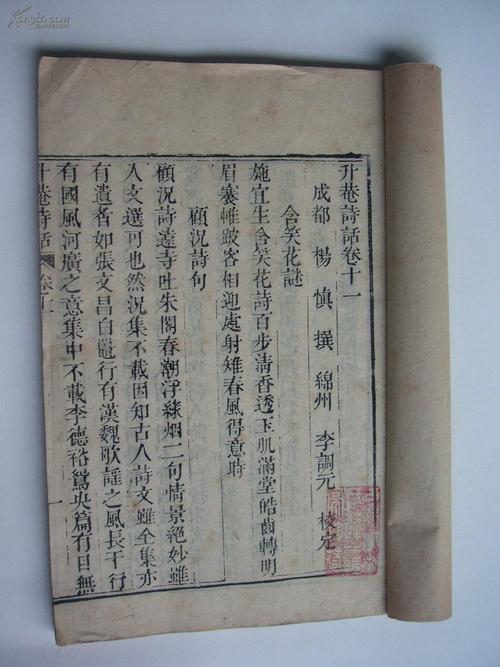 升菴詩話卷十一
成都 楊慎 撰 綿州 李調元 校定
含笑花謎
施宜生含笑花詩百步清香透玉肌滿堂皓齒轉明
眉褰帷跛客相迎處射雉春風得意時
顧況詩句
顧況詩遠寺吐朱閣春潮浮綠烟二句情景絕妙雖
入文選可也然況集不載因知古人詩文雖全集亦
有遺者如張文昌白鼉行有漢魏歌謠之風長干行
有國風河廣之意集中不載李德裕鴛央篇有日無
升菴詩話 卷十一 一
kongfz.com